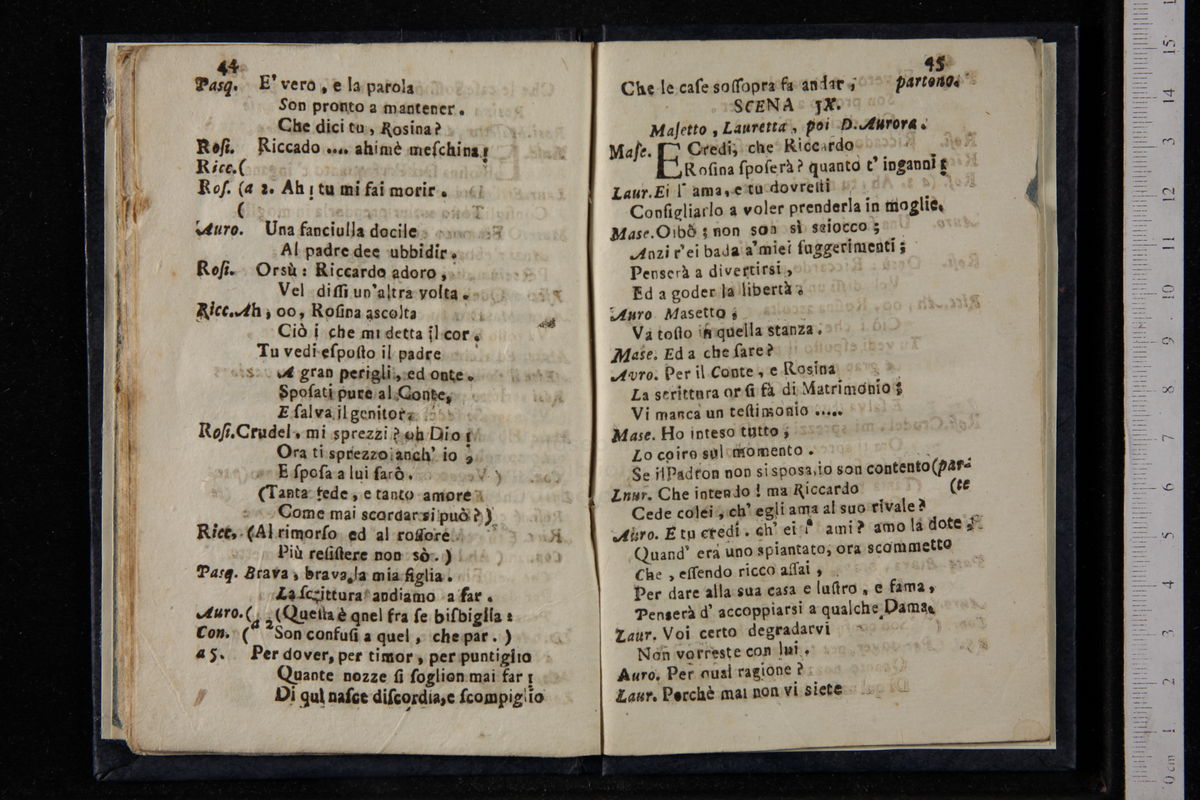 44
Pasq. E' vero, e la parola
Son pronto a mantener.
Che dici tu, Rosina?
Roſi. Riccado .... ahimè meſchina!
Ricc. (
Roſ. (a 2. Ah! tu mi fai morir.
(
Auro. Una fanciulla docile
Al padre dee ubbidir.
Roſi. Orsù: Riccardo adoro,
Vel diſſi un'altra volta.
Ricc. Ah, oo, Roſina aſcolta
Ciò i che mi detta il cor.
Tu vedi eſpoſto il padre
A gran perigli, ed onte.
Spoſati pure al Conte,
E ſalva il genitor.
Roſi. Crudel. mi sprezzi? oh Dio!
Ora ti sprezzo anch' io;
E ſpoſa a lui ſarò.
(Tanta fede, e tanto amore
Come mai scordar si può?)
Ricc. (Al rimorſo ed al roſſore
Più reſiſtere non sò.)
Pasq. Brava, brava, la mia figlia.
La ſcrittura andiamo a far.
Auro. ( (Queſta è qnel fra ſe biſbiglia:
Con. ( a 2 Son confuſi a quel, che par.)
a 5. Per dover, per timor, per puntiglio
Quante nozze ſi ſoglion mai far!
Di quì naſce diſcordia, e ſcompiglio
45
Che le caſe soſſopra fa andar; partono.
SCENA IX.
Maſetto, Lauretta, poi D. Aurora.
Maſe. E Credi, che Riccardo
Roſina ſpoſerà? quanto t' inganni!
Laur. Ei l' ama, e tu dovreſti
Conſigliarlo a voler prenderla in moglie.
Mase. Oibò; non son sì sciocco;
Anzi s'ei bada a'miei ſuggerimenti;
Penserà a divertirsi,
Ed a goder la libertà.
Auro Masetto,
Va toſto in quella stanza.
Mase. Ed a che fare?
Avro. Per il Conte, e Rosina
La scrittura or ſi fà di Matrimonio;
Vi manca un teſtimonio .....
Mase. Ho inteso tutto;
Lo coiro sul momento.
Se il Padron non si sposa, io son contento (par-
Lnur. Che intendo! ma Riccardo (te
Cede colei, ch' egli ama al suo rivale?
Auro. E tu credi. ch' ei l' ami? amo la dote;
Quand' era uno spiantato, ora scommetto
Che, eſſendo ricco aſſai,
Per dare alla sua casa e luſtro, e fama,
Penserà d' accoppiarsi a qualche Dama.
Laur. Voi certo degradarvi
Non vorreste con lui.
Auro. Per qual ragione?
Laur. Perchè mai non vi siete